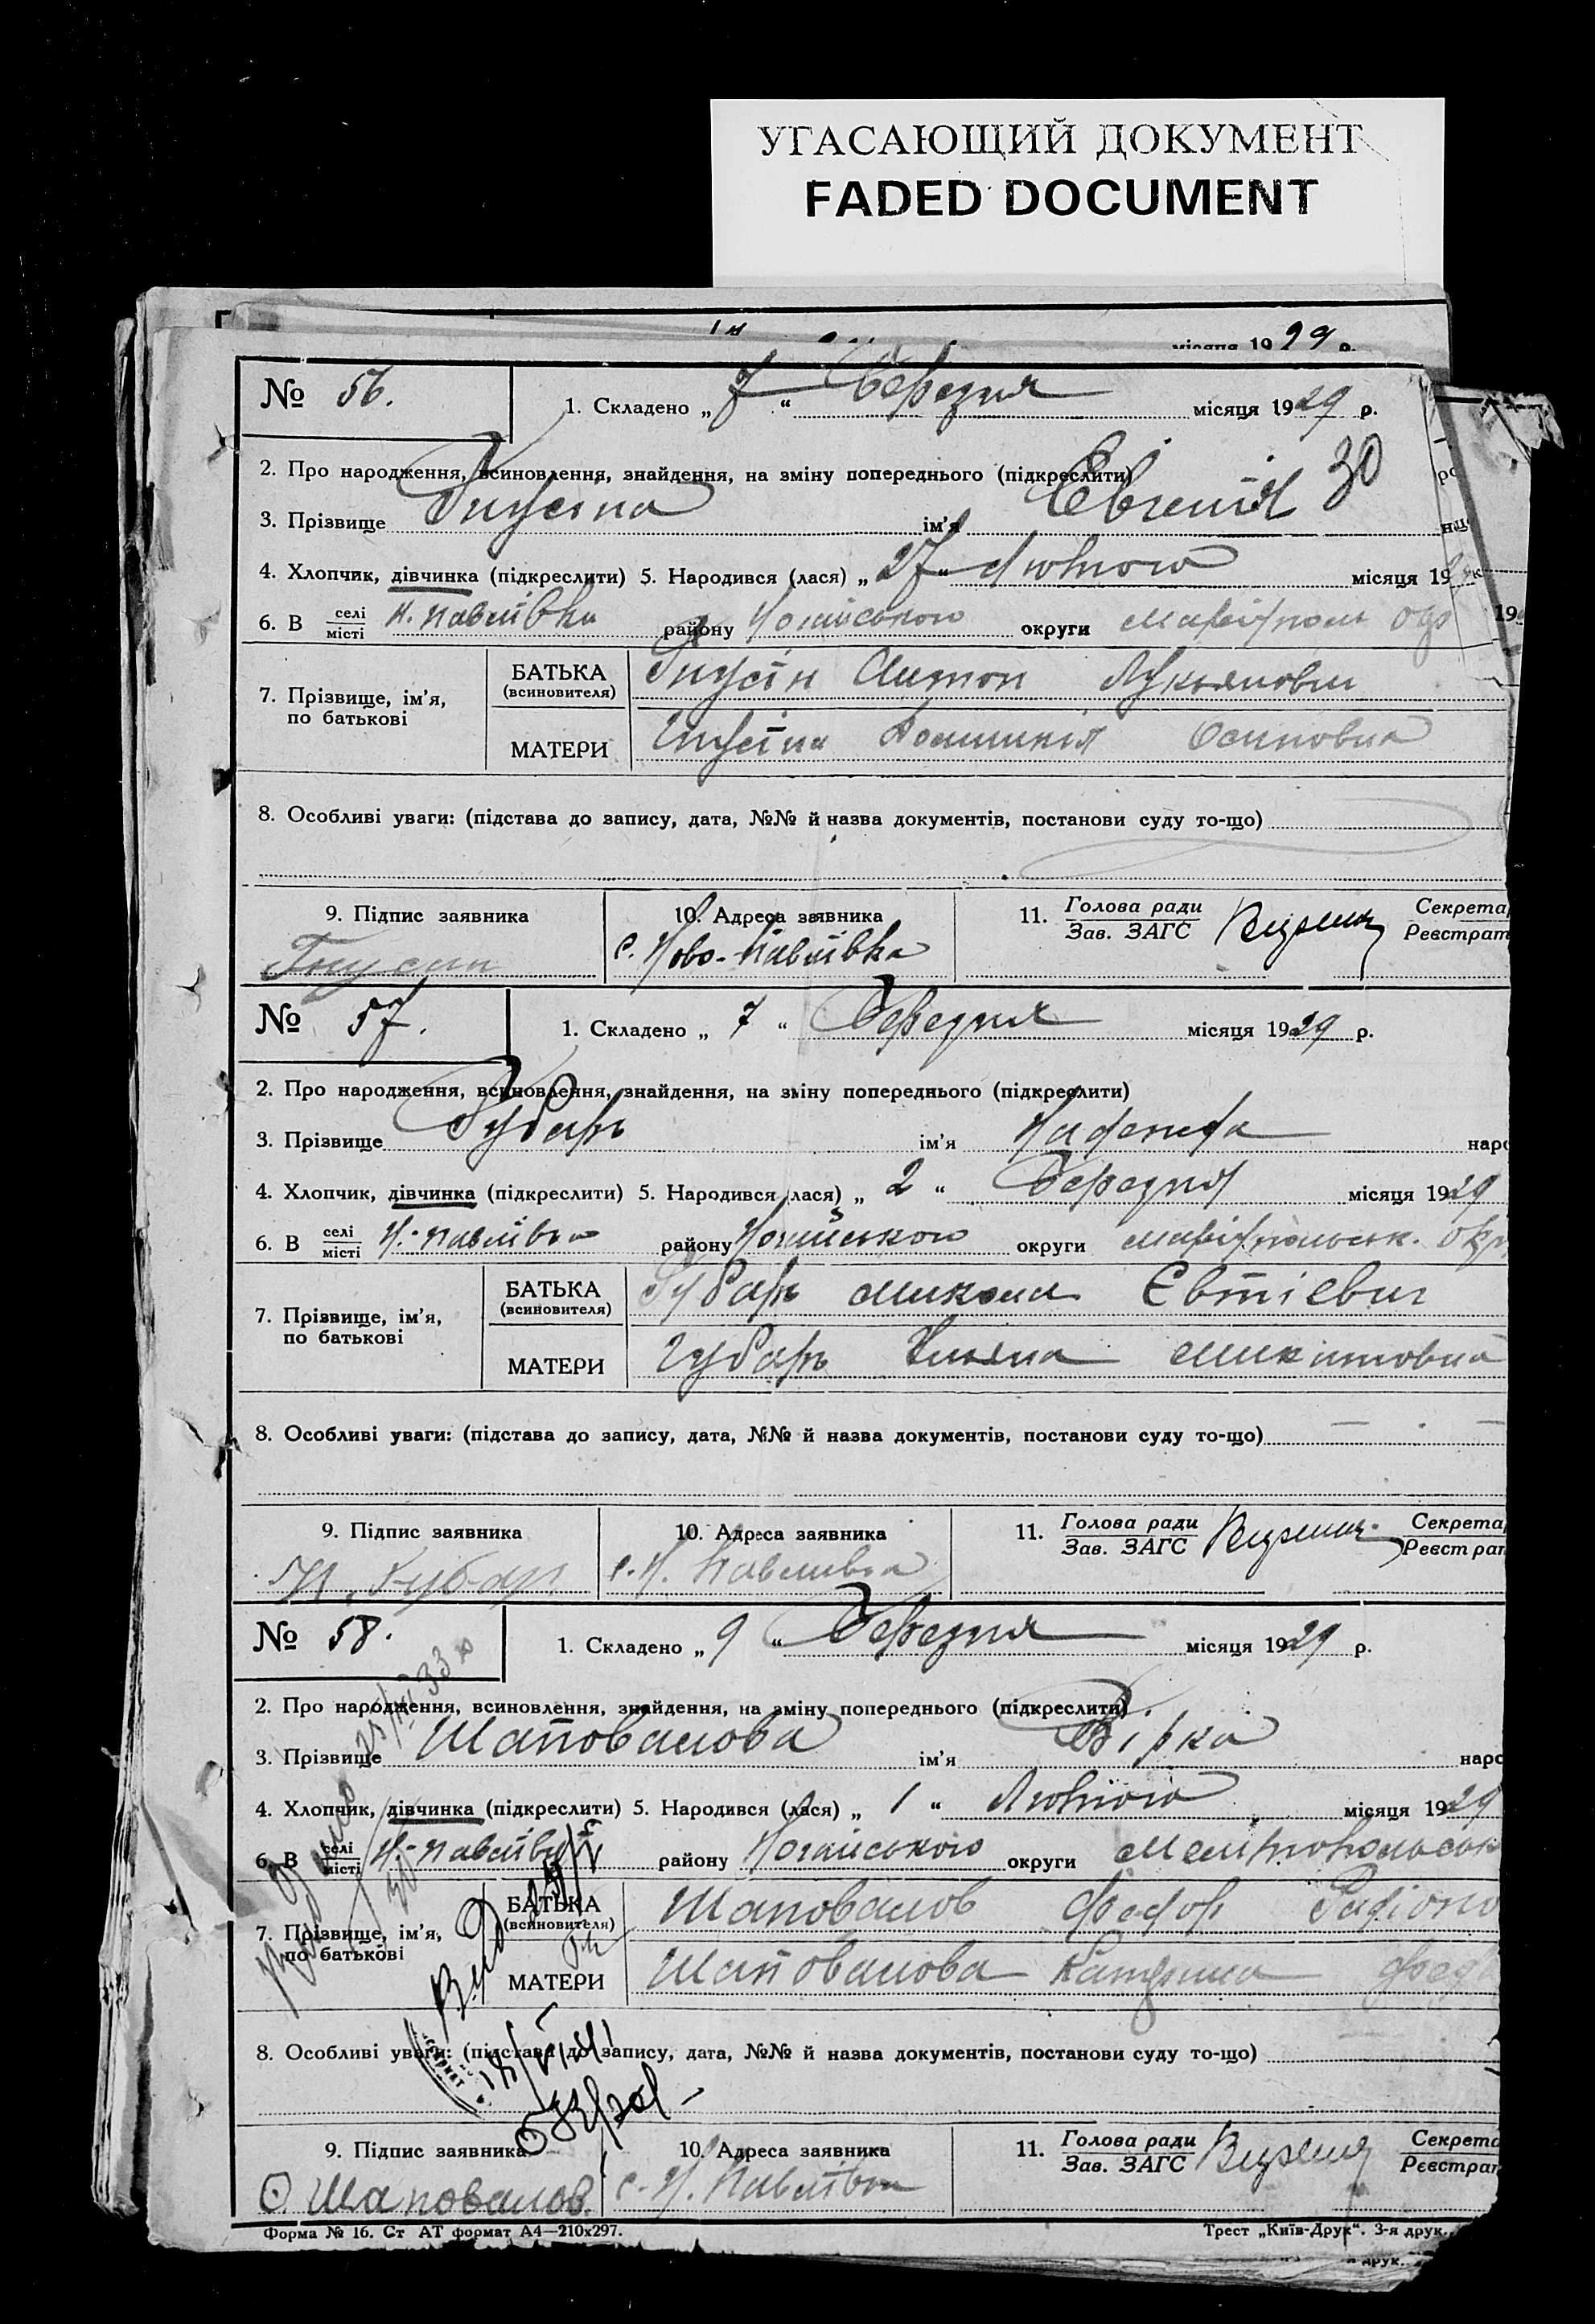 УГАСАЮЩИЙ ДОКУМЕНТ
FADED DOCUMENT
місяця 1929 р.
№ 56. 1. Складено „7“ Березня місяця 1929 р.
2. Про народження, всиновлення, знайдення, на зміну попереднього (підкреслити)
3. Прізвище Гнусіна ім'я Евгенія 30
4. Хлопчик, дівчинка (підкреслити) 5. Народився (лася) „27“ Лютого місяця 19
6. В селі місті Н. Павлівка району Ногайського округи Маріупол окр
7. Прізвище, ім'я, по батькові
БАТЬКА (всиновителя) Гнусін Антон Лукьянович
МАТЕРИ Гнусіна Осиповна
8. Особливі уваги: (підстава до запису, дата, №№ й назва документів, постанови суду то-що)
9. Підпис заявника 10. Адреса заявника 11. Голова ради Зав. ЗАГС Секретар Реєстрат
Гнусин с. Ново-Павлівка
№ 57. 1. Складено „7“ Березня місяця 1929 р.
2. Про народження, всиновлення, знайдення, на зміну попереднього (підкреслити)
3. Прізвище Губарь ім'я Надежда наро
4. Хлопчик, дівчинка (підкреслити) 5. Народився (лася) „2“ Березня місяця 1929
6. В селі місті Н.-Павлівка району Ногайського округи Маріупольськ. окр
7. Прізвище, ім'я, по батькові
БАТЬКА (всиновителя) Губарь Микола Євтієвич
МАТЕРИ Губарь Микитовна
8. Особливі уваги: (підстава до запису, дата, №№ й назва документів, постанови суду то-що)
9. Підпис заявника 10. Адреса заявника 11. Голова ради Зав. ЗАГС Секретар Реєстрат
Н. Губарь с. Н. Павливка
№ 58. 1. Складено „9“ Березня місяця 1929 р.
2. Про народження, всиновлення, знайдення, на зміну попереднього (підкреслити)
3. Прізвище Шаповалова ім'я Вірка наро
4. Хлопчик, дівчинка (підкреслити) 5. Народився (лася) „1“ Лютого місяця 1929
6. В селі місті Н.-Павлівка району Ногайського округи Мелитопольськ
7. Прізвище, ім'я, по батькові
БАТЬКА (всиновителя) Шаповалов Федор Радіоно
МАТЕРИ Шаповалова Катерина Федо
8. Особливі уваги: (підстава до запису, дата, №№ й назва документів, постанови суду то-що)
9. Підпис заявника 10. Адреса заявника 11. Голова ради Зав. ЗАГС Секрета Реєстрат
Ф. Шаповалов. с. Н. Павлівка
Форма № 16. Ст АТ формат А4—210х297. Трест „Київ-Друк“. 3-я друк.